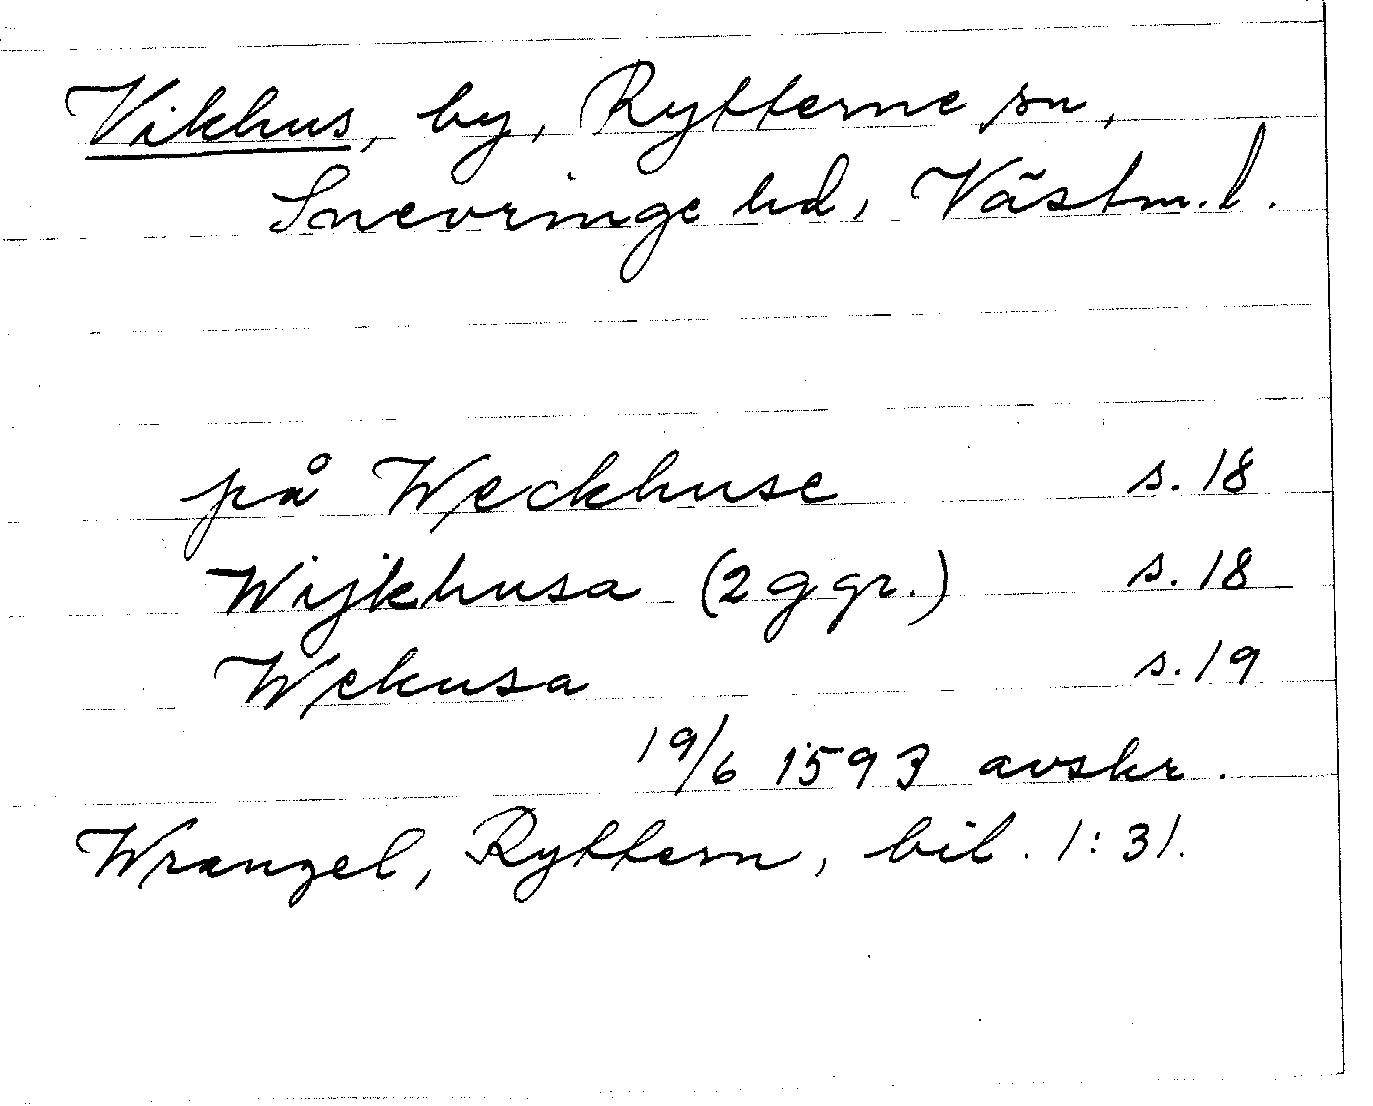 Vikhus, by, Rytterne sn,
Snevringe hd, Västm. l.
på Weckhuse s. 18
Wijkhusa (2 ggr.) s. 18
Wekusa s. 19
19/6 1593 avskr.
Wrangel, Ryttern, bil. 1:31.